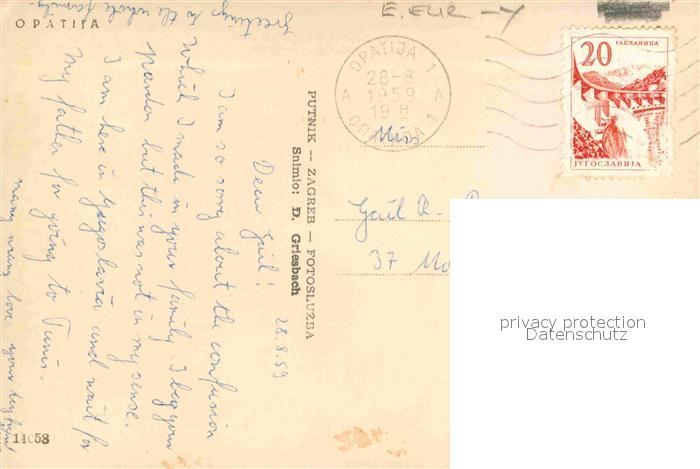 OPATIJA
Greetings to the whole family.
E. EUR - Y
28.8.59
Dear Gail!
I am so sorry about the confusion
which I made in your family. I beg your
pardon but this was not in my sense.
I am here in Yugoslavia and wait for
my father for going to Tunis.
many many love your
14058
PUTNIK — ZAGREB — FOTOSLUŽBA
Snimio: Đ. Griesbach
OPATIJA 1
28-8
A 1959 A
19 H
OPATIJA 1
20
ЈАБЛАНИЦА
ЈУГОСЛАВИЈА
Miss
Gail R.
37
privacy protection
Datenschutz